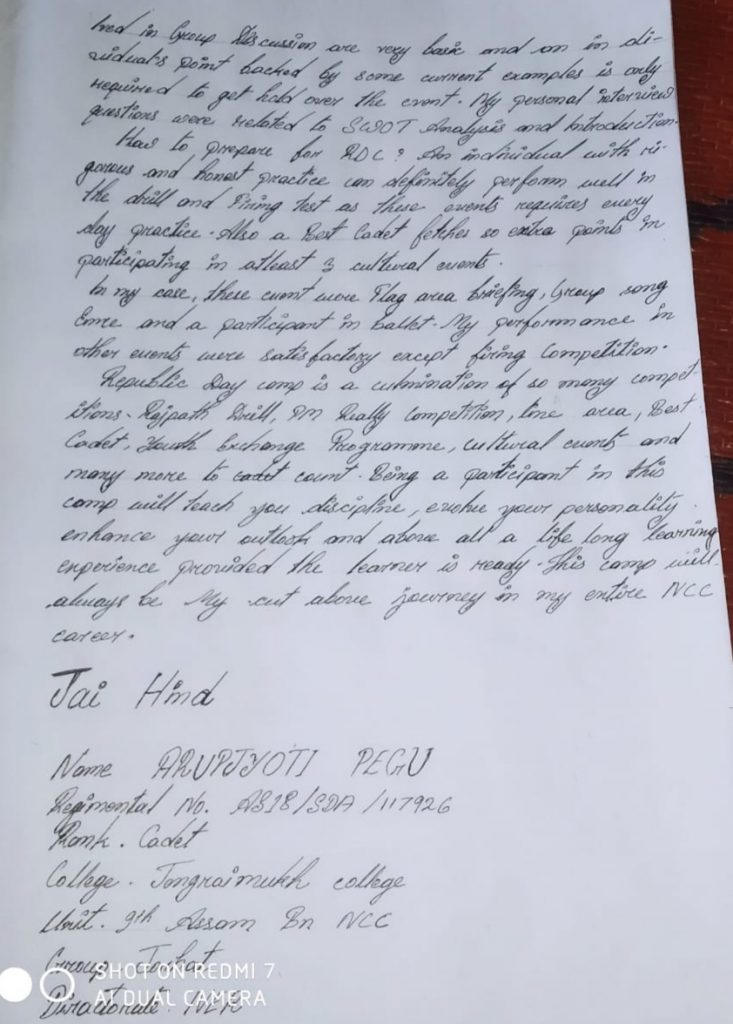 lved in Group Discussion are very basic and an in di-
vidual's point backed by some current examples is only
required to get hold over the event. My personal interview
questions were related to SWOT Analysis and Introduction.
How to prepare for RDC? An individual with ri-
gorous and honest practice can definitely perform well in
the drill and Firing test as these events requires every
day practice. Also a Best Cadet fetches so extra points in
participating in atleast 3 cultural events.
In my case, these event were Flag area briefing, Group song
and a participant in ballet. My performance in
other events were satisfactory except firing Competition.
Republic Day camp is a culmination of so many compet
itions. Rajpath Drill, PM Rally Competition, line area, Best
Cadet, Youth Exchange Programme, cultural events and
many more to count. Being a participant in this
camp will teach you discipline, evolve your personality
enhance your outlook and above all a life long learning
experience provided the learner is ready. This camp will
always be My cut above journey in my entire NCC
career.
Jai Hind
Name ARUPJYOTI PEGU
Regimental No. AS18/SDA/117926
Rank. Cadet
College. Jongraimukh college
Unit. 9th Assam Bn NCC
Group Jorhat
Directorate. NER
SHOT ON REDMI 7
AI DUAL CAMERA